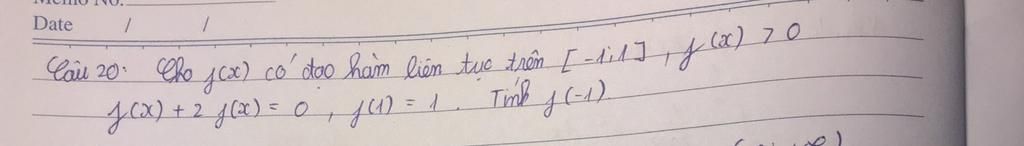 Memo No.
Date / /
Câu 20: Cho f(x) có đạo hàm liên tục trên [-1;1], f(x) > 0
f(x) + 2 f(x) = 0, f(1) = 1. Tính f(-1)